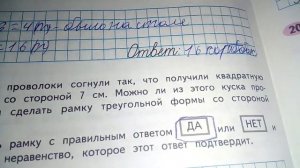 3 = 4 ру - было на столе
= 16 ру
Ответ: 16 коробок
20
проволоки согнули так, что получили квадратную
со стороной 7 см. Можно ли из этого куска про-
сделать рамку треугольной формы со стороной
рамку с правильным ответом ДА или НЕТ и
неравенство, которое этот ответ подтвердит.